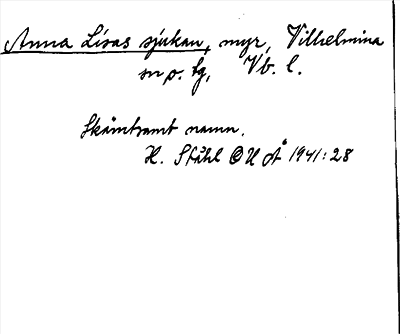 Anna Lisas sjukan, myr, Vilhelmina
sn o. lg, Vb. l.
Skämtsamt namn.
H. Ståhl OUÅ 1941:28